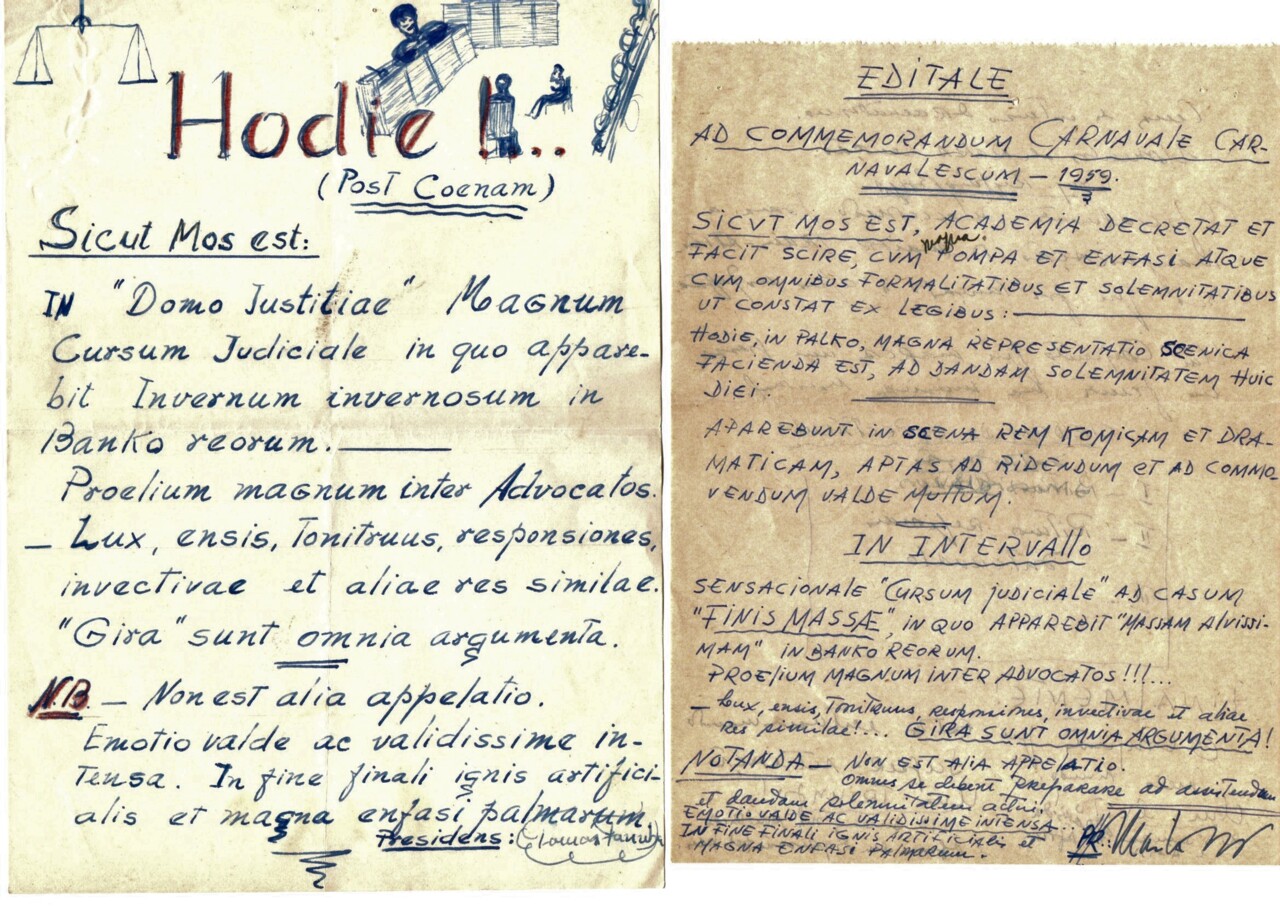 Hodie !...
(Post Coenam)
Sicut Mos est:
IN "Domo Justitiae" Magnum
Cursum Judiciale in quo appare-
bit Invernum invernosum in
Banko reorum.
Proelium magnum inter Advocatos.
— Lux, ensis, Tonitruus, responsiones,
invectivae et aliae res similae.
"Gira" sunt omnia argumenta.
N.B. — Non est alia appelatio.
Emotio valde ac validissime in-
tensa. In fine finali ignis artifici-
alis et magna enfasi palmarum.
Presidens:
EDITALE
AD COMMEMORANDUM CARNAVALE CAR-
NAVALESCUM — 1959.
SICVT MOS EST, ACADEMIA DECRETAT ET
FACIT SCIRE, CVM magna POMPA ET ENFASI ATQUE
CVM OMNIBUS FORMALITATIBUS ET SOLEMNITATIBUS
UT CONSTAT EX LEGIBUS:
HODIE, IN PALKO, MAGNA REPRESENTATIO SCENICA
FACIENDA EST, AD DANDAM SOLEMNITATEM HUIC
DIEI.
APAREBUNT IN SCENA REM KOMICAM ET DRA-
MATICAM, APTAS AD RIDENDUM et AD COMMO-
VENDUM VALDE MUltUM.
IN INTERVAllo
SENSACIONALE "CURSUM JUDICIALE" AD CASUM
"FINIS MASSÆ", IN QUO APPAREBIT "MASSAM Alvissi-
MAM" IN BANKO REORUM.
PROElIUM MAGNUM INTER ADVOCATOS!!!...
— Lux, ensis, Tonitruus, responsiones, invectivae et aliae
res similae!... GIRA SUNT OMNIA ARGUMENTA!
NOTANDA — NON EST AlIA APPELATIO.
Omnes se debent preparare ad assistendum
et dandam solemnitatem actui.
EMOTIO VALDE AC VALIDISSIME INTENSA...
IN FINE FINALI IGNIS ARTIFICIALIS et
MAGNA ENFASI PAlMARUM.
PR.: